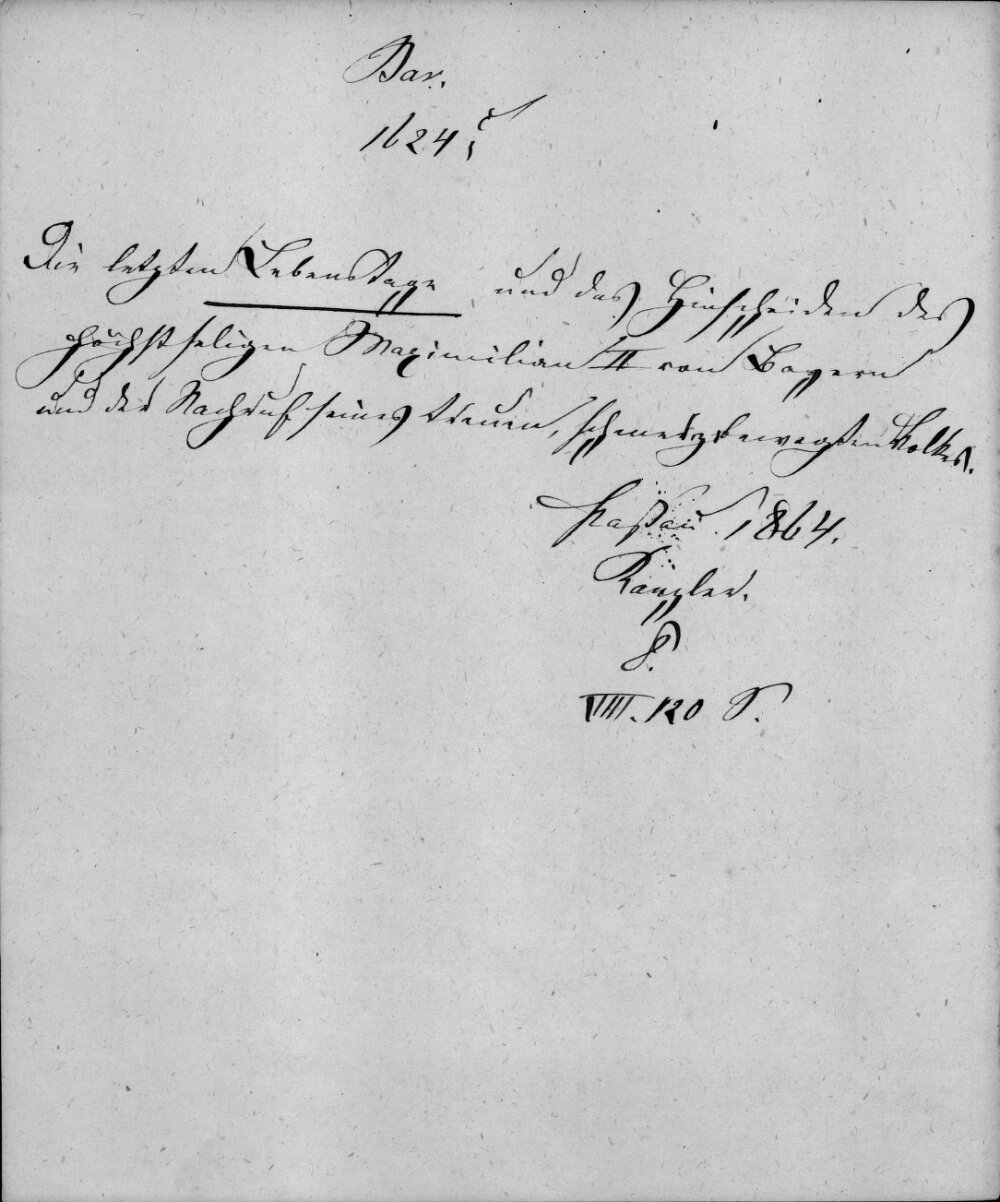 Bav.
1624
Die letzten Lebenstage und das Hinscheiden des
höchstseligen Maximilian II von Bayern
und der Nachruf seines treuen, schmerzbewegten Volkes.
Passau 1864.
8.
VIII. 120 S.